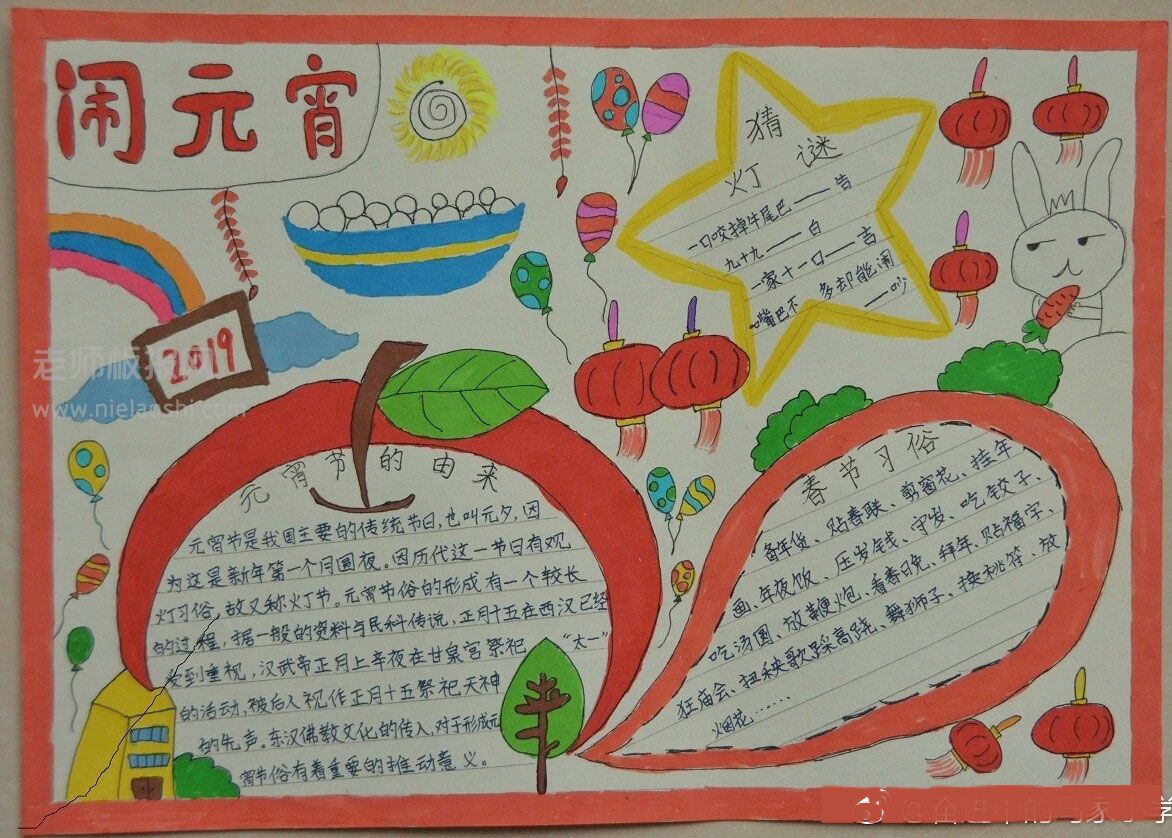 闹元宵
2019
老师板报网
www.nielaoshi.com
猜
灯谜
一口咬掉牛尾巴——告
九十九——白
一家十一口——吉
嘴巴不多却能闹
——吵
元宵节的由来
元宵节是我国主要的传统节日,也叫元夕,因
为这是新年第一个月圆夜。因历代这一节日有观
灯习俗,故又称灯节。元宵节俗的形成有一个较长
的过程,据一般的资料与民科传说,正月十五在西汉已经
受到重视,汉武帝正月上辛夜在甘泉宫祭祀“太一”
的活动,被后人视作正月十五祭祀天神
的先声。东汉佛教文化的传入,对于形成元
宵节俗有着重要的推动意义。
春节习俗
备年货、贴春联、剪窗花、挂年
画、年夜饭、压岁钱、守岁、吃饺子、
吃汤圆、放鞭炮、看春晚、拜年、贴福字、
狂庙会、扭秧歌踩高跷、舞狮子、换桃符、放
烟花……